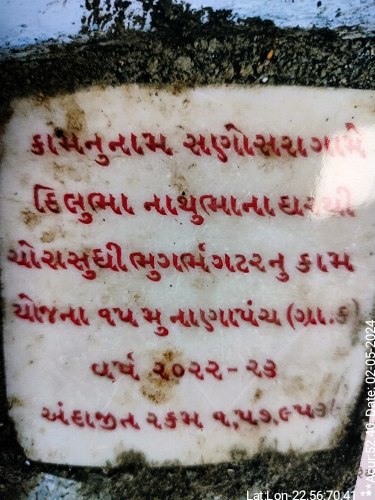 કામનુનામ સણોસરાગામે
દિલુભા નાથુભાના ઘરથી
ચોરાસુધી ભુગર્ભગટરનુ કામ
યોજના ૧૫મુ નાણાપંચ (ગ્રા.ક)
વર્ષ ૨૦૨૨-૨૩
અંદાજીત રકમ
Lat:Lon-22.56:70.41
Date: 02-05-2024